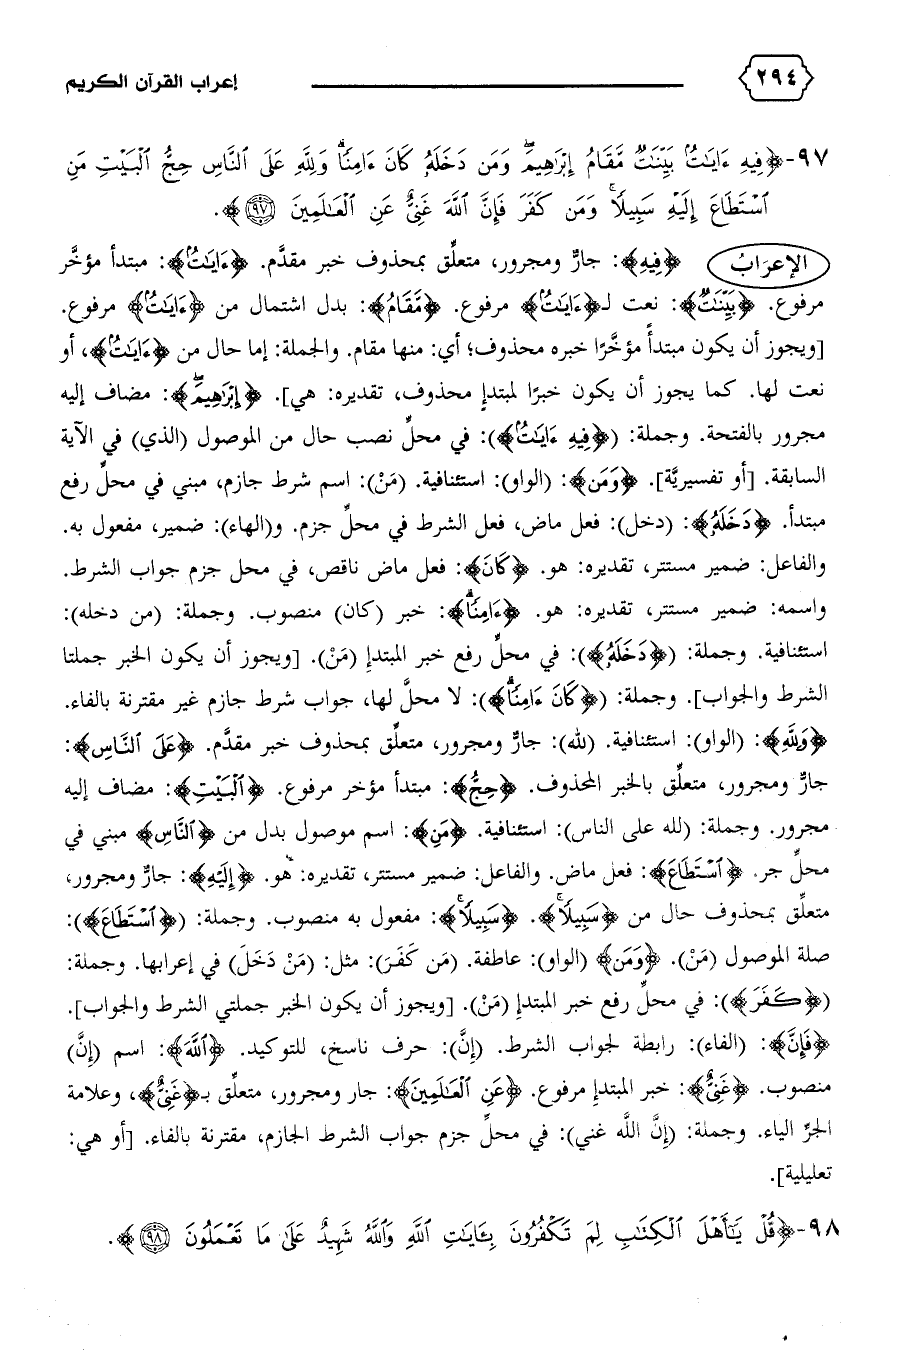 ٢٩٤ إعراب القرآن الكريم
٩٧- ﴿فِيهِ ءَايَٰتٌۢ بَيِّنَٰتٌ مَّقَامُ إِبْرَٰهِيمَۖ وَمَن دَخَلَهُۥ كَانَ ءَامِنًاۗ وَلِلَّهِ عَلَى ٱلنَّاسِ حِجُّ ٱلْبَيْتِ مَنِ
ٱسْتَطَاعَ إِلَيْهِ سَبِيلًاۚ وَمَن كَفَرَ فَإِنَّ ٱللَّهَ غَنِيٌّ عَنِ ٱلْعَٰلَمِينَ ٩٧﴾.
الإعرَابُ ﴿فِيهِ﴾: جارٌّ ومجرور، متعلِّق بمحذوف خبر مقدَّم. ﴿ءَايَٰتٌۢ﴾: مبتدأ مؤخَّر
مرفوع. ﴿بَيِّنَٰتٌ﴾: نعت لـ﴿ءَايَٰتٌۢ﴾ مرفوع. ﴿مَّقَامُ﴾: بدل اشتمال من ﴿ءَايَٰتٌۢ﴾ مرفوع.
[ويجوز أن يكون مبتدأً مؤخَّرًا خبره محذوف؛ أي: منها مقام. والجملة: إما حال من ﴿ءَايَٰتٌۢ﴾، أو
نعت لها. كما يجوز أن يكون خبرًا لمبتدإٍ محذوف، تقديره: هي]. ﴿إِبْرَٰهِيمَۖ﴾: مضاف إليه
مجرور بالفتحة. وجملة: (﴿فِيهِ ءَايَٰتٌۢ﴾): في محلِّ نصب حال من الموصول (الذي) في الآية
السابقة. [أو تفسيريَّة]. ﴿وَمَن﴾: (الواو): استئنافية. (مَنْ): اسم شرط جازم، مبني في محلِّ رفع
مبتدأ. ﴿دَخَلَهُۥ﴾: (دخل): فعل ماض، فعل الشرط في محلِّ جزم. و(الهاء): ضمير، مفعول به.
والفاعل: ضمير مستتر، تقديره: هو. ﴿كَانَ﴾: فعل ماض ناقص، في محل جزم جواب الشرط.
واسمه: ضمير مستتر، تقديره: هو. ﴿ءَامِنًاۗ﴾: خبر (كان) منصوب. وجملة: (من دخله):
استئنافية. وجملة: (﴿دَخَلَهُۥ﴾): في محلِّ رفع خبر المبتدإ (مَنْ). [ويجوز أن يكون الخبر جملتا
الشرط والجواب]. وجملة: (﴿كَانَ ءَامِنًاۗ﴾): لا محلَّ لها، جواب شرط جازم غير مقترنة بالفاء.
﴿وَلِلَّهِ﴾: (الواو): استئنافية. (لله): جارٌّ ومجرور، متعلِّق بمحذوف خبر مقدَّم. ﴿عَلَى ٱلنَّاسِ﴾:
جارٌّ ومجرور، متعلِّق بالخبر المحذوف. ﴿حِجُّ﴾: مبتدأ مؤخر مرفوع. ﴿ٱلْبَيْتِ﴾: مضاف إليه
مجرور. وجملة: (لله على الناس): استئنافية. ﴿مَنِ﴾: اسم موصول بدل من ﴿ٱلنَّاسِ﴾ مبني في
محلِّ جر. ﴿ٱسْتَطَاعَ﴾: فعل ماض. والفاعل: ضمير مستتر، تقديره: هو. ﴿إِلَيْهِ﴾: جارٌّ ومجرور،
متعلِّق بمحذوف حال من ﴿سَبِيلًاۚ﴾. ﴿سَبِيلًاۚ﴾: مفعول به منصوب. وجملة: (﴿ٱسْتَطَاعَ﴾):
صلة الموصول (مَنْ). ﴿وَمَن﴾ (الواو): عاطفة. (مَن كَفَرَ): مثل: (مَنْ دَخَلَ) في إعرابها. وجملة:
(﴿كَفَرَ﴾): في محلِّ رفع خبر المبتدإ (مَنْ). [ويجوز أن يكون الخبر جملتي الشرط والجواب].
﴿فَإِنَّ﴾: (الفاء): رابطة لجواب الشرط. (إنَّ): حرف ناسخ، للتوكيد. ﴿ٱللَّهَ﴾: اسم (إنَّ)
منصوب. ﴿غَنِيٌّ﴾: خبر المبتدإ مرفوع. ﴿عَنِ ٱلْعَٰلَمِينَ﴾: جار ومجرور، متعلِّق بـ﴿غَنِيٌّ﴾، وعلامة
الجرِّ الياء. وجملة: (إنَّ اللَّه غني): في محلِّ جزم جواب الشرط الجازم، مقترنة بالفاء. [أو هي:
تعليلية].
٩٨- ﴿قُلْ يَٰٓأَهْلَ ٱلْكِتَٰبِ لِمَ تَكْفُرُونَ بِـَٔايَٰتِ ٱللَّهِ وَٱللَّهُ شَهِيدٌ عَلَىٰ مَا تَعْمَلُونَ ٩٨﴾.